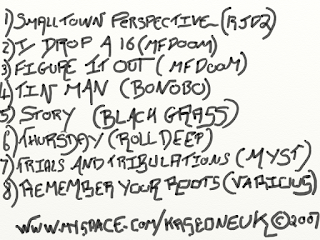 1) SMALLTOWN PERSPECTIVE (RJD2)
2) I DROP A 16 (MFDOOM)
3) FIGURE IT OUT (MFDOOM)
4) TIN MAN (BONOBO)
5) STORY (BLACK GRASS)
6) THURSDAY (ROLL DEEP)
7) TRIALS AND TRIBULATIONS (MYST)
8) REMEMBER YOUR ROOTS (VARICIUS)
WWW.MYSPACE.COM/KRGEONEUK © 2007